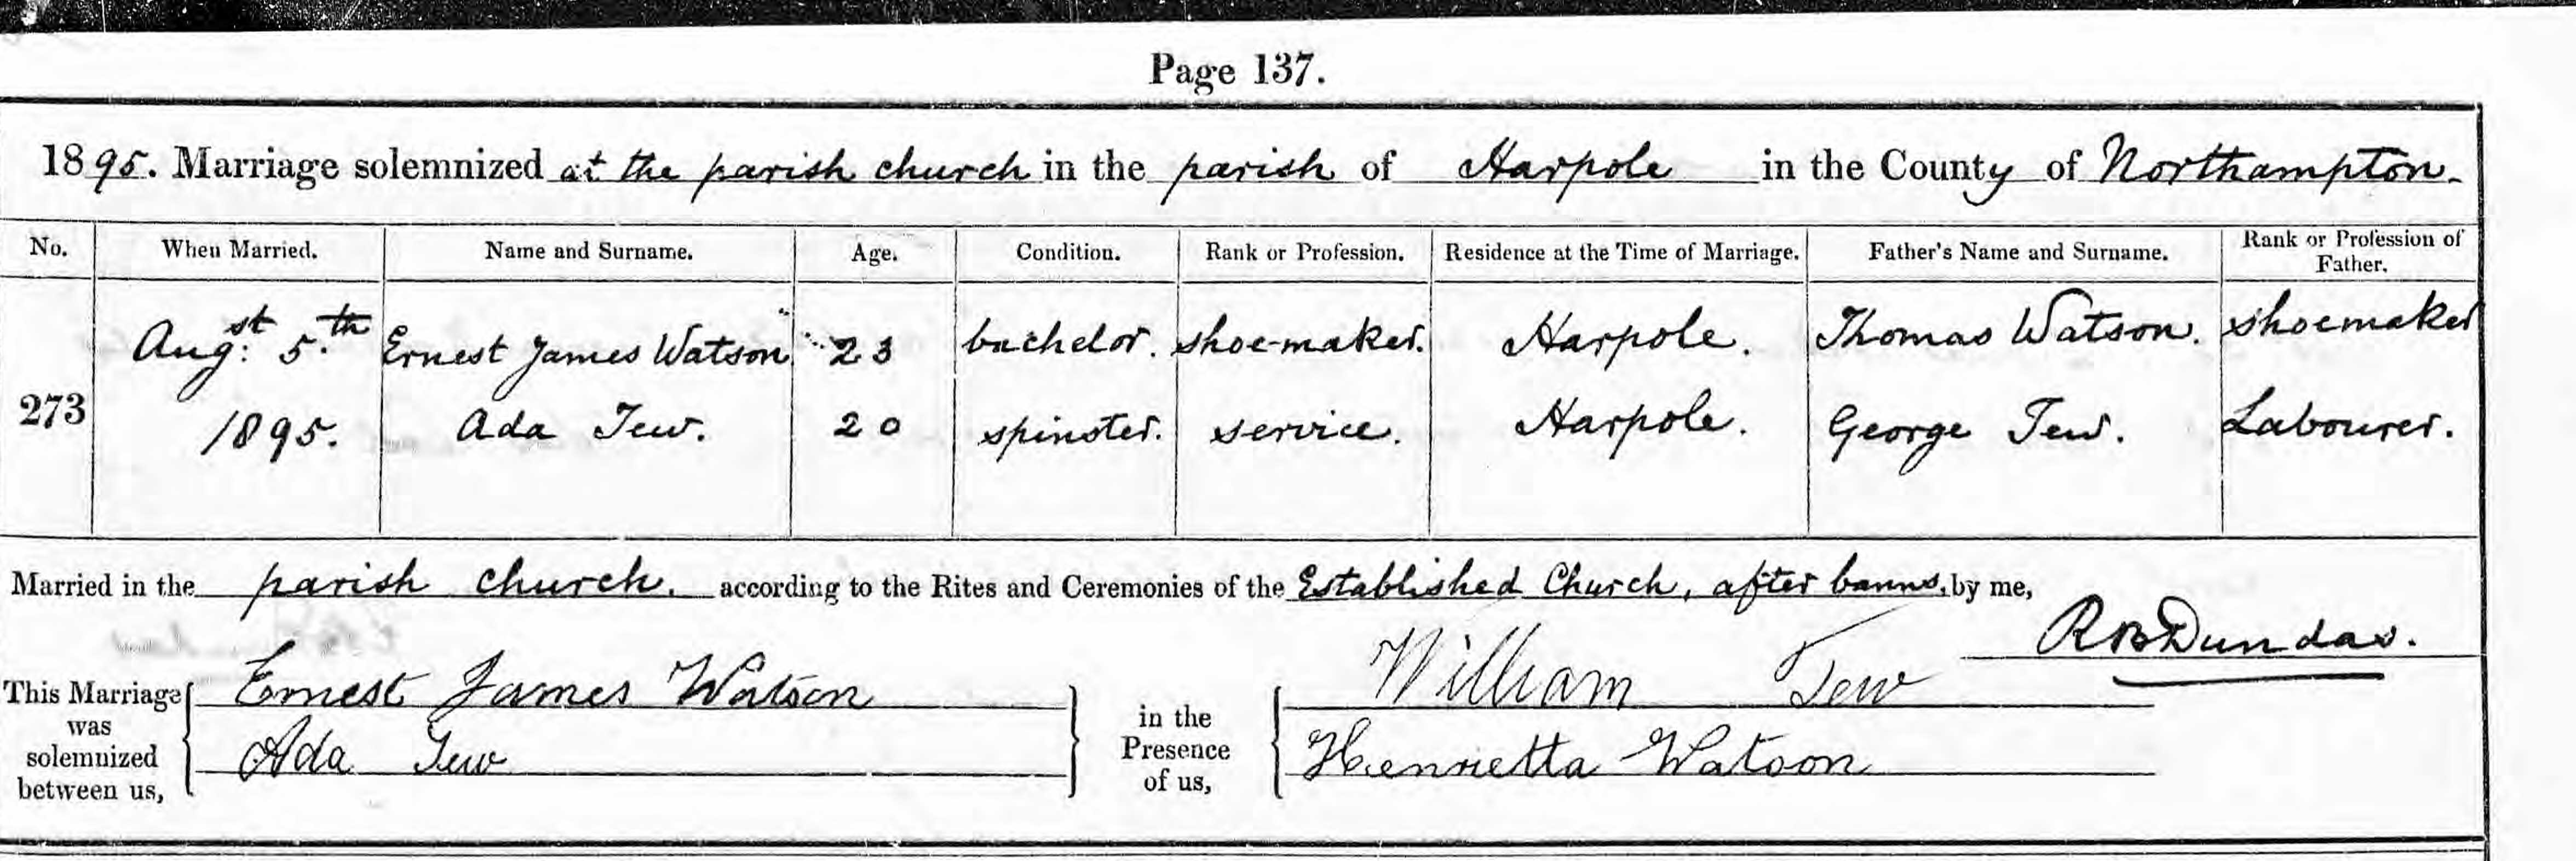 Page 137.
1895. Marriage solemnized at the parish church in the parish of Harpole in the County of Northampton.
No. When Married. Name and Surname. Age. Condition. Rank or Profession. Residence at the Time of Marriage. Father's Name and Surname. Rank or Profession of Father.
Augst: 5th Ernest James Watson 23 bachelor. shoe-maker. Harpole. Thomas Watson. shoemaker
273 1895. Ada Tew. 20 spinster. service. Harpole. George Tew. Labourer.
Married in the parish church. according to the Rites and Ceremonies of the Established Church, after banns, by me,
R B Dundas.
This Marriage was solemnized between us, Ernest James Watson in the Presence of us, William Tew
Ada Tew Henrietta Watson